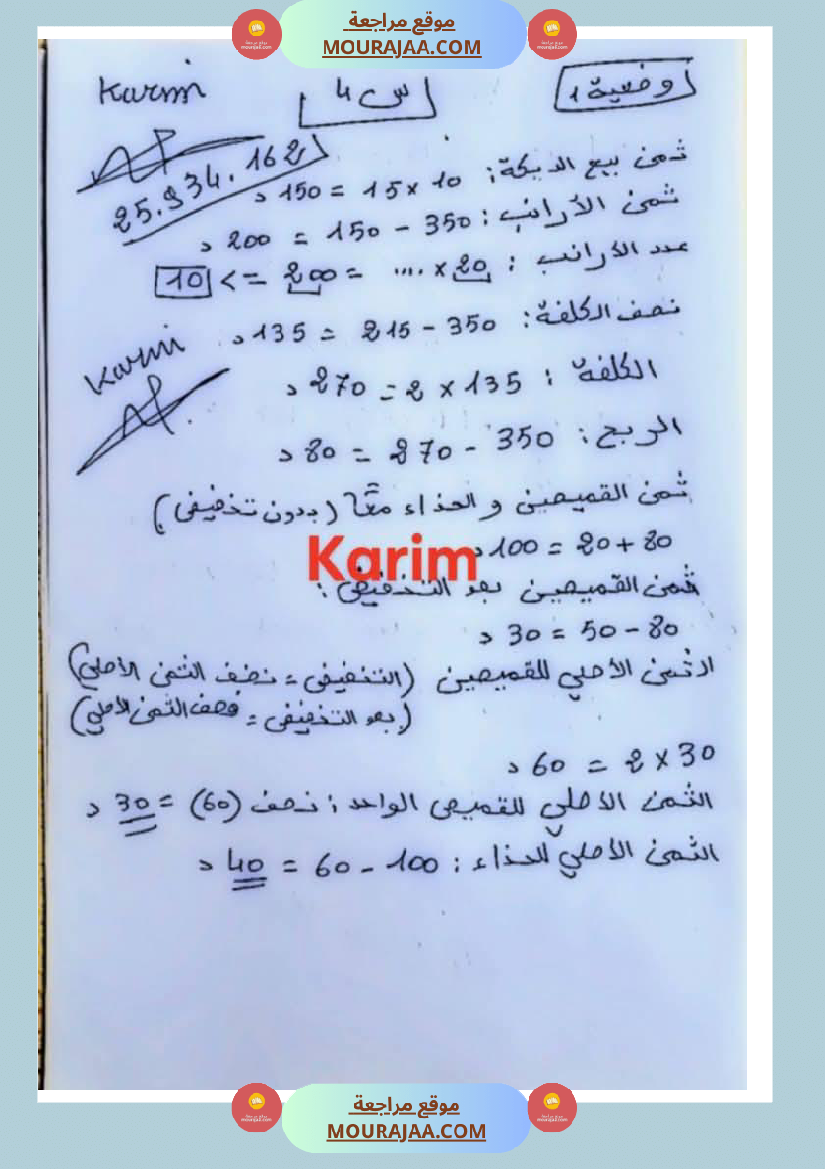 موقع مراجعة
MOURAJAA.COM
وضعية 1
س 4
Karim
25.934.162
ثمن بيع الديكة: 10 × 15 = 150 د
ثمن الأرانب: 350 - 150 = 200 د
عدد الأرانب: 20 × .... = 200 => 10
نصف الكلفة: 350 - 215 = 135 د
Karim
الكلفة: 135 × 2 = 270 د
الربح: 350 - 270 = 80 د
ثمن القميصين و الحذاء معا (بدون تخفيض)
80 + 20 = 100 د
Karim
ثمن القميصين بعد التخفيض:
80 - 50 = 30 د
الثمن الأصلي للقميصين (التخفيض = نصف الثمن الأصلي)
(بعد التخفيض = نصف الثمن الأصلي)
30 × 2 = 60 د
الثمن الأصلي للقميص الواحد: نصف (60) = 30 د
الثمن الأصلي للحذاء: 100 - 60 = 40 د
موقع مراجعة
MOURAJAA.COM